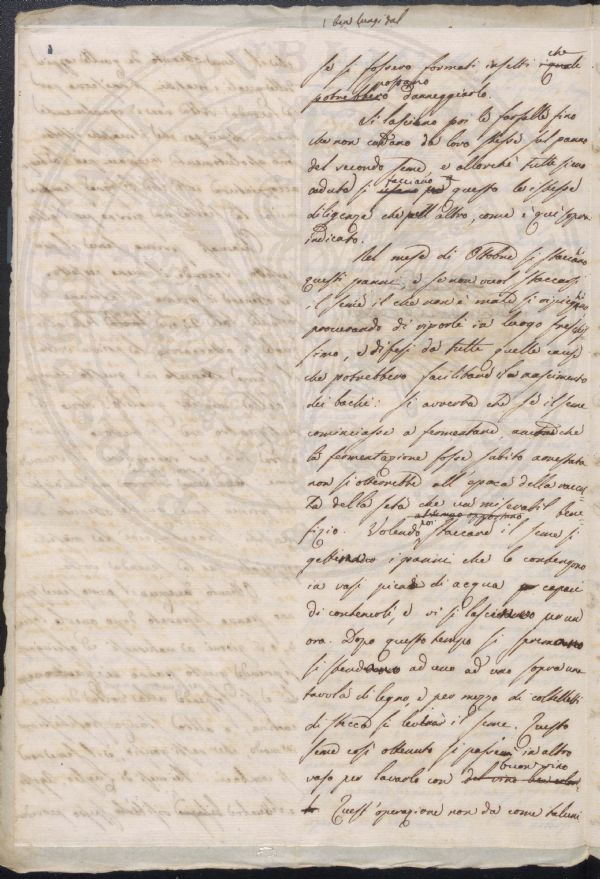 se si fossero formati insetti che quale
possano
potrebbero danneggiarlo.
Si lasciano poi le farfalle fino
che non cadano da loro stesse sul panno
del secondo seme, e allorchè tutte sieno
cadute si facciano questo le istesse
diligenze che pell'altro, come è quì sopra
indicato.
Nel mese di Ottobre si staccano
questi panni, e se non vuol staccarsi
il seme il che non è male si ripieghino
procurando di riporli in luogo freschis-
simo, e difesi da tutte quelle cause
che potrebbero facilitare il nascimento
dei bachi: si avverta che se il seme
cominciasse a fermentare, ancorchè
la fermentazione fosse subito arrestata
non si otterrebbe all'epoca della raccol-
ta della seta che un miserabil bene-
fizio. Volendo poi staccare il seme si
gettino i panni che lo contengono
in vasi pieni di acqua capaci
di contenerli, e vi si lascino per un
ora. Dopo questo tempo si premano
si stendano ad uno ad uno sopra una
tavola di legno e per mezzo di coltelletti
di stecca si levi il seme. Questo
seme così ottenuto si passi in altro
buon vino
vaso per lavarlo con del vino ben
Quest'operazione non da come taluni